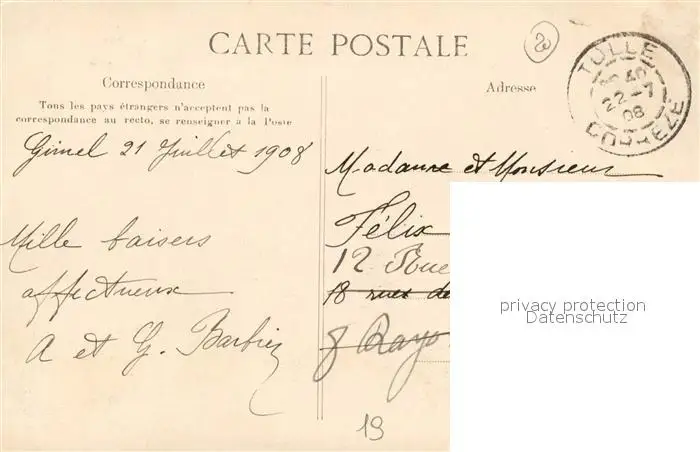 CARTE POSTALE
20
TULLE
8 40
22-7
08
CORREZE
Correspondance
Adresse
Tous les pays étrangers n'acceptent pas la
correspondance au recto, se renseigner à la Poste
Gimel 21 Juillet 1908
Mille baisers
affectueux
A et G. Barbier
Madame et Monsieur
Félix
12 Rue
18 rues de
8 Rayo
19
privacy protection
Datenschutz